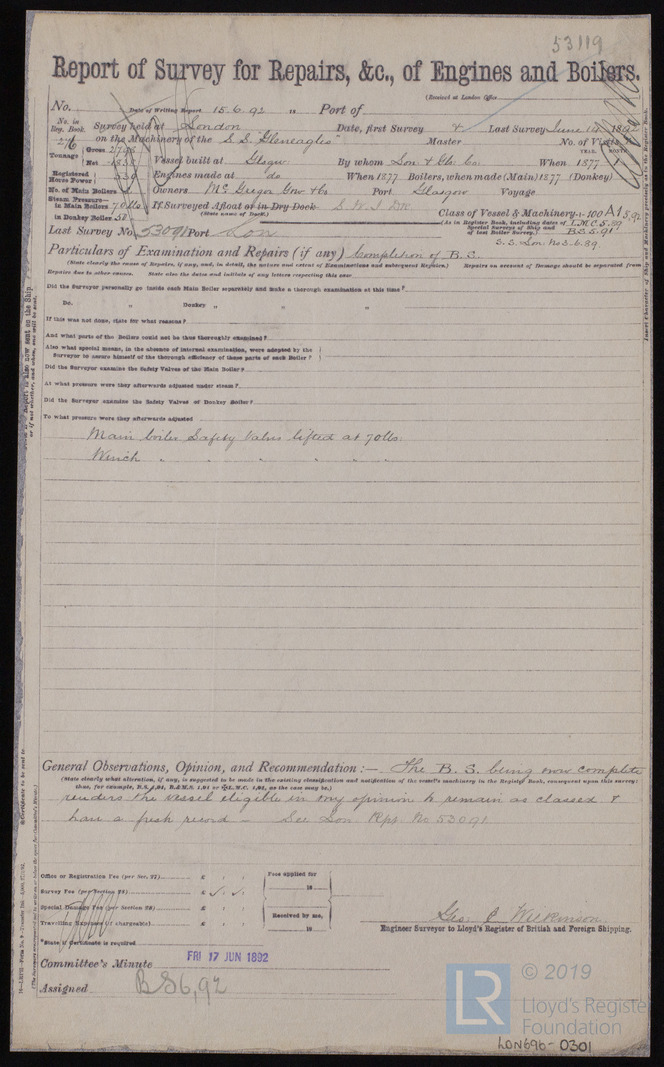 53119
Report of Survey for Repairs, &c., of Engines and Boilers.
(Received at London Office
No. Date of Writing Report 15.6.92 18 Port of
No. in Reg. Book. Survey held at London Date, first Survey & Last Survey June 14 1892
276 on the Machinery of the S.S. "Gleneagles" Master No. of Visits
Tonnage Gross Net 1838 Vessel built at Glsgw By whom Lon & Gls. Co. When 1877
YEAR. MONTH.
Registered Horse Power Engines made at do When 1877 Boilers, when made (Main) 1877 (Donkey)
No. of Main Boilers Owners McGregor Gow & Co Port Glasgow Voyage
Steam Pressure— in Main Boilers 70 lbs If Surveyed Afloat or in Dry Dock S.W.I. Dk.
(State name of Dock.)
in Donkey Boiler 50 Class of Vessel & Machinery 100 A1 5,92
(As in Register Book, including dates of Special Surveys of Ship and of last Boiler Survey.) L.M.C. 5.89
B.S. 5.91
Last Survey No. 53091 Port Lon
S.S. Lon. No 3-6.89
Particulars of Examination and Repairs (if any) Completion of B.S.
(State clearly the cause of Repairs, if any, and, in detail, the nature and extent of Examinations and subsequent Repairs.) Repairs on account of Damage should be separated from
Repairs due to other causes. State also the dates and initials of any letters respecting this case
Did the Surveyor personally go inside each Main Boiler separately and make a thorough examination at this time?
Do. „ Donkey „ „ „
If this was not done, state for what reasons?
And what parts of the Boilers could not be thus thoroughly examined?
Also what special means, in the absence of internal examination, were adopted by the
Surveyor to assure himself of the thorough efficiency of those parts of each Boiler?
Did the Surveyor examine the Safety Valves of the Main Boiler?
At what pressure were they afterwards adjusted under steam?
Did the Surveyor examine the Safety Valves of Donkey Boiler?
To what pressure were they afterwards adjusted
Main boiler Safety Valves lifted at 70 lbs.
Winch „ „ „ „ „ „
General Observations, Opinion, and Recommendation:— The B.S. being now complete
(State clearly what alteration, if any, is suggested to be made in the existing classification and notification of the vessel's machinery in the Register Book, consequent upon this survey:
thus, for example, B.S. 1,91, B.&M.S. 1,91 or L.M.C. 1,91, as the case may be.)
renders the vessel eligible in my opinion to remain as classed &
have a fresh record – See Lon Rpt. No 53091
Office or Registration Fee (per Sec. 27) £ : :
Survey Fee (per Section 28) £
Special Damage Fee (per Section 28) £ : :
Travelling Expenses (if chargeable) £ : :
Fees applied for
18
Received by me,
18
*State if Certificate is required
Geo. C. Wilkinson
Engineer Surveyor to Lloyd's Register of British and Foreign Shipping.
Committee's Minute FRI 17 JUN 1892
Assigned BS 6,92
LR
© 2019
Lloyd's Register
Foundation
LON696-0301